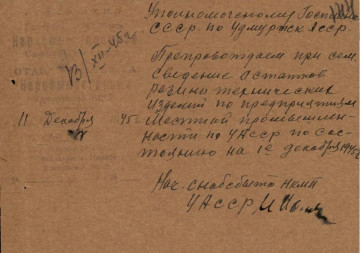 Уполномоченому Госплана
СССР. по Удмуртск. Асср.
13/XII-45г
Препровождаем при сем
Сведение Остатков
резино технических
изделий по предприятиям
11 Декабря 45-
Местной промышлен-
ности по УАССР по сос-
тоянию на 1е декабря 1945г
Нач. снабсбыта НКМП
УАССР,